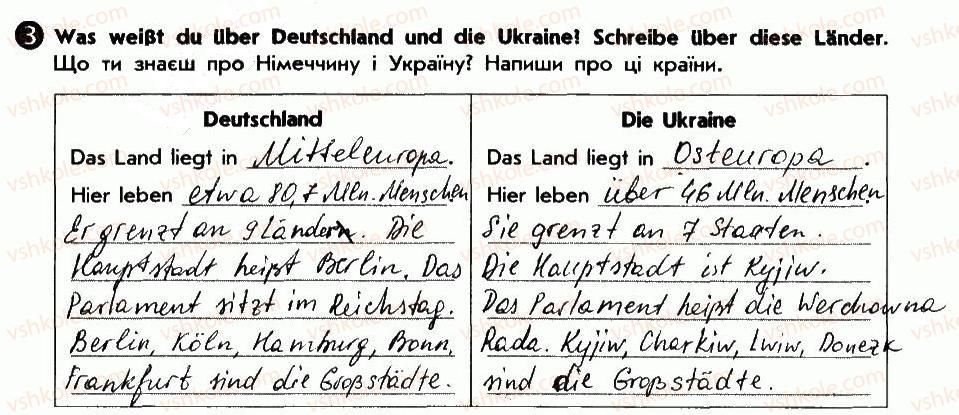 3 Was weißt du über Deutschland und die Ukraine? Schreibe über diese Länder.
Що ти знаєш про Німеччину і Україну? Напиши про ці країни.
Deutschland
Das Land liegt in Mitteleuropa.
Hier leben etwa 80,7 Mln. Menschen
Er grenzt an 9 Ländern. Die
Hauptstadt heißt Berlin. Das
Parlament sitzt im Reichstag.
Berlin, Köln, Hamburg, Bonn,
Frankfurt sind die Großstädte.
Die Ukraine
Das Land liegt in Osteuropa.
Hier leben über 46 Mln. Menschen
Sie grenzt an 7 Staaten.
Die Hauptstadt ist Kyjiw.
Das Parlament heißt die Werchowna
Rada. Kyjiw, Charkiw, Lwiw, Donezk
sind die Großstädte.
vshkole.com